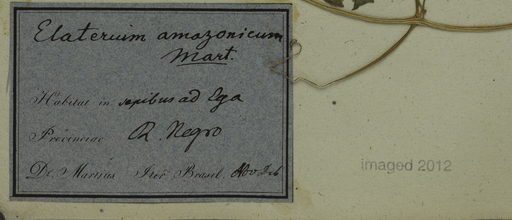 Elaterium amazonicum
Mart.
Habitat in sepibus ad Ega
Provinciae R. Negro
Dr. Martius Iter Brasil.
imaged 2012